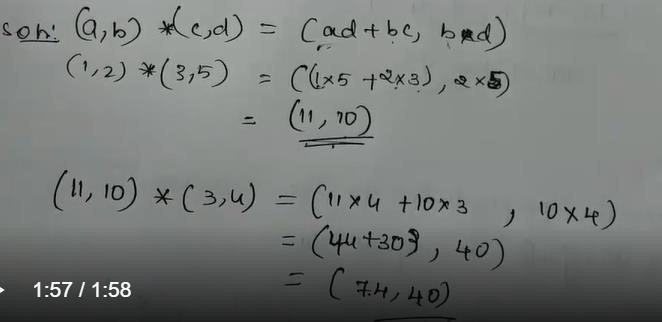 Soln: (a,b) *(c,d) = (ad+bc, bd)
(1,2) *(3,5) = ((1×5 +2×3), 2×5)
= (11, 10)
(11, 10) *(3,4) = (11×4 +10×3 , 10×4)
= (44+30), 40)
= (74, 40)
1:57 / 1:58